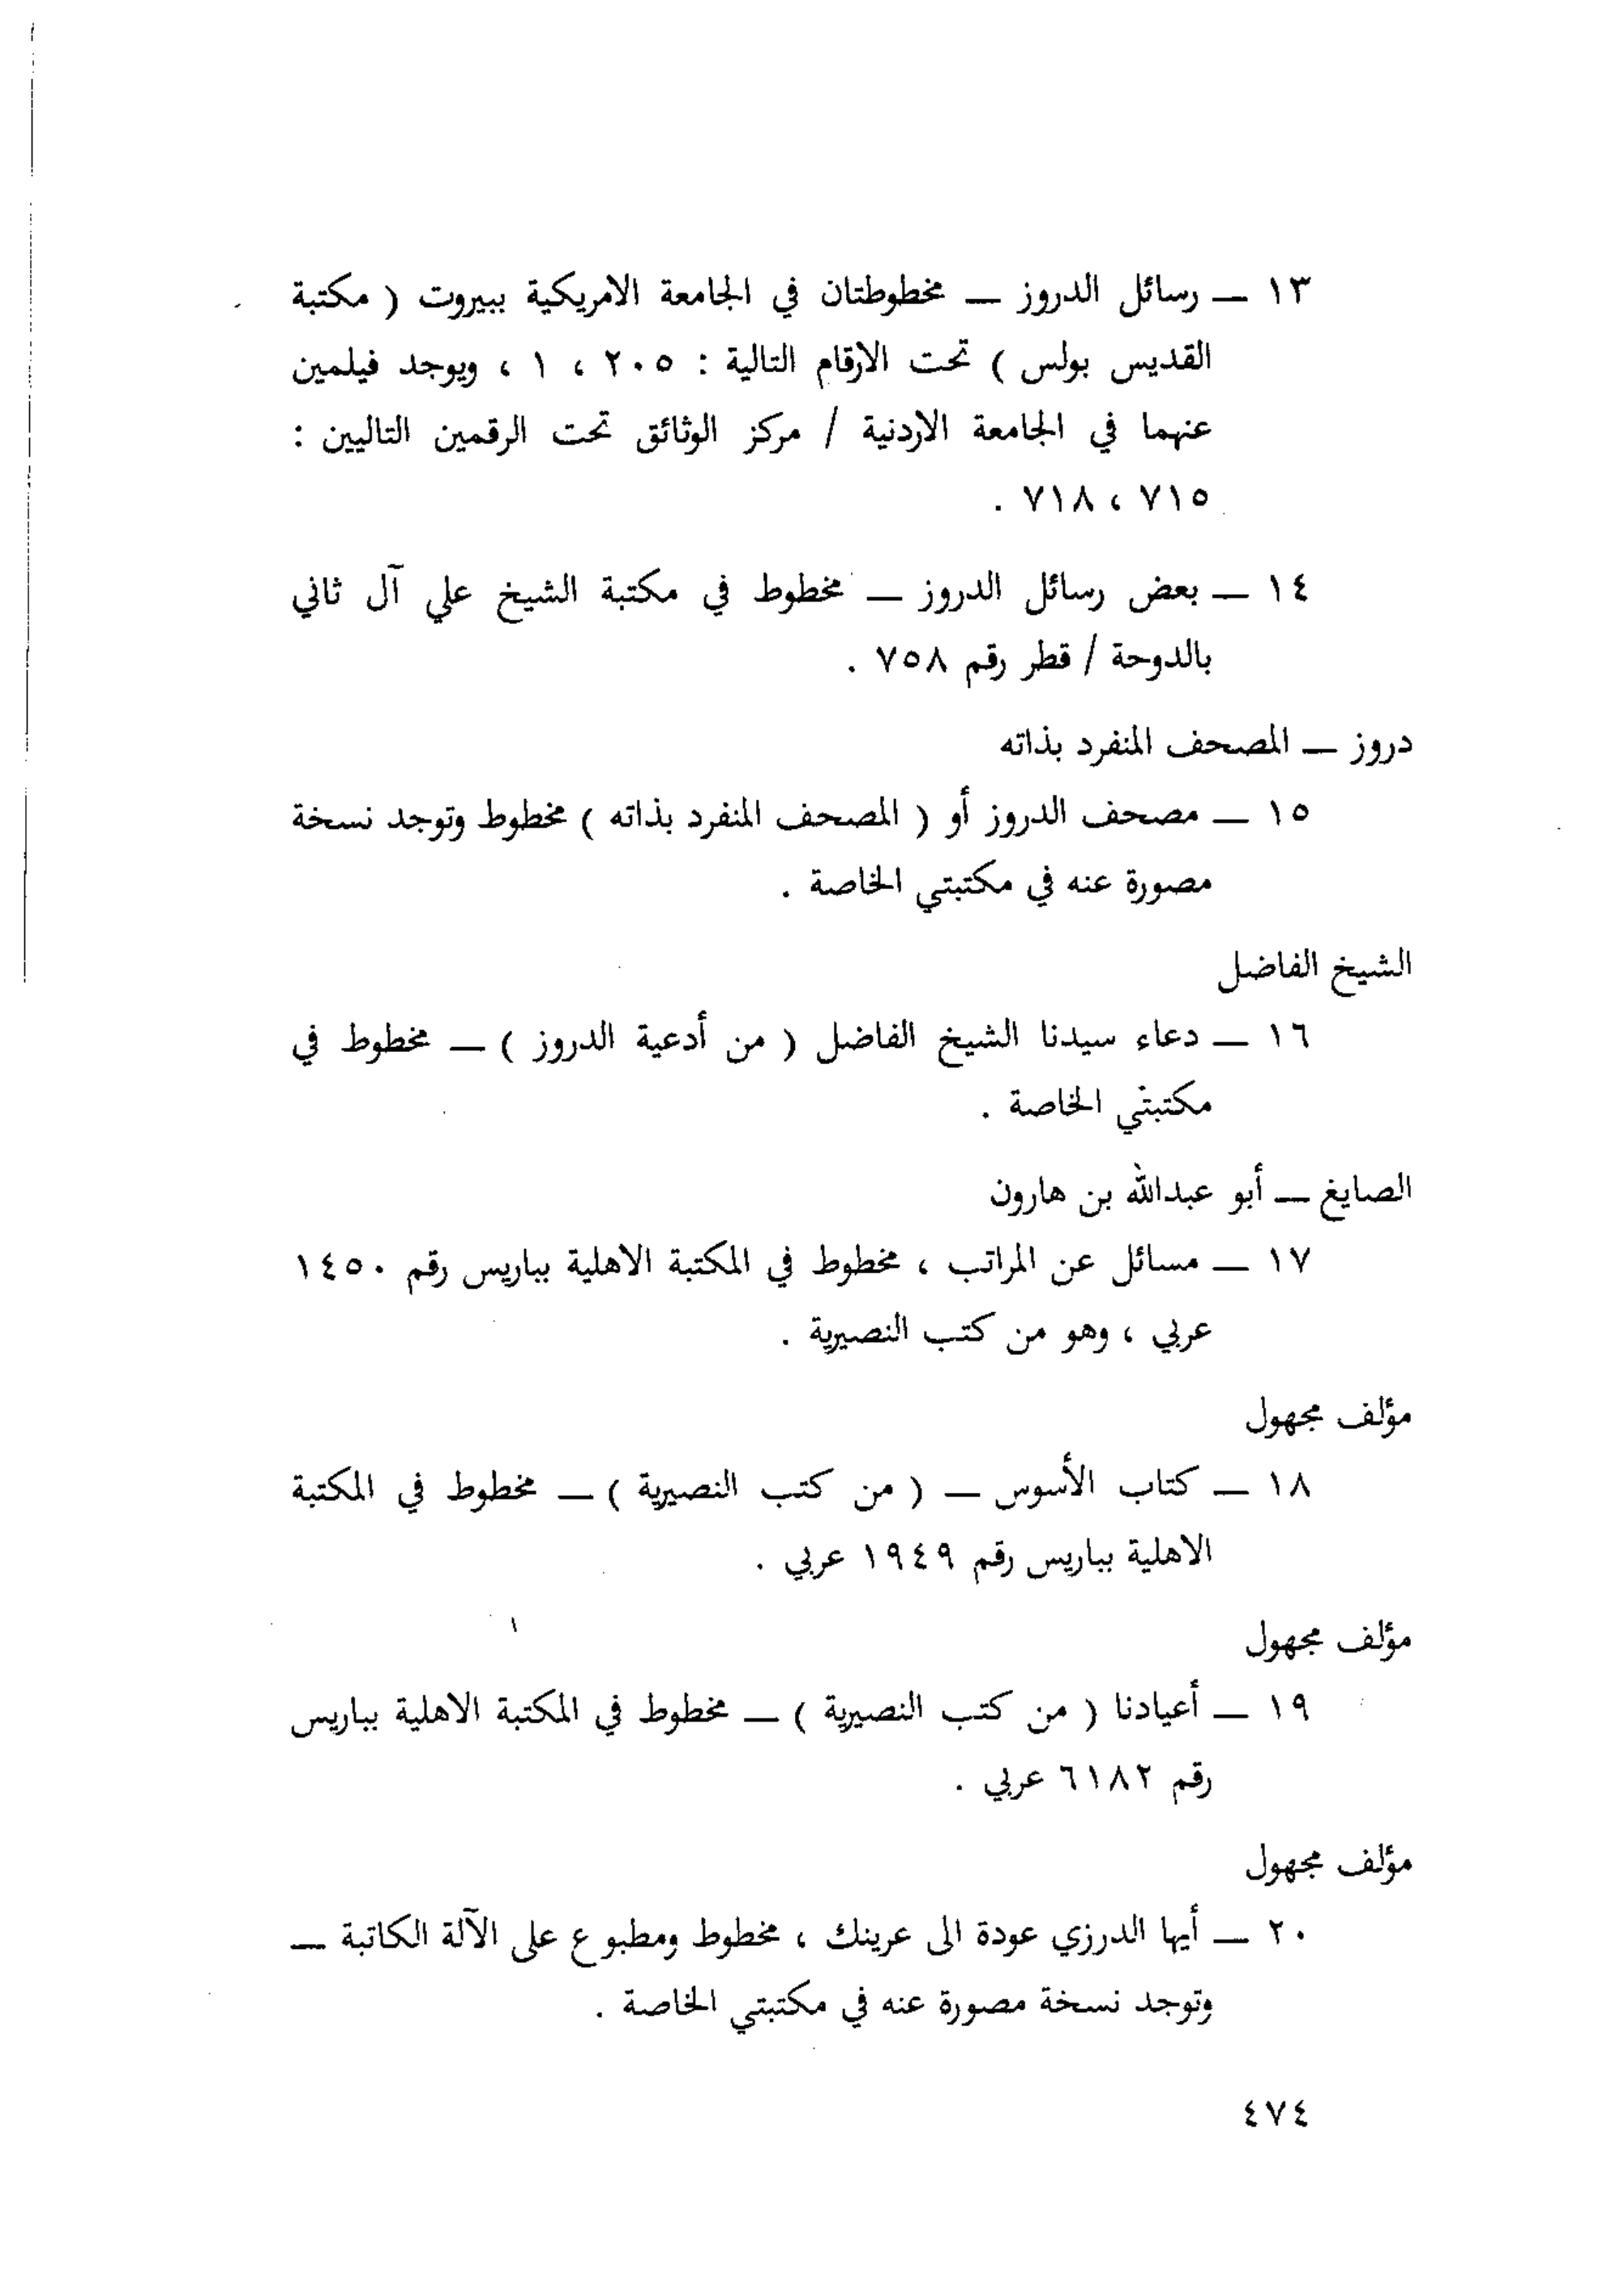 ١٣ — رسائل الدروز — مخطوطتان في الجامعة الامريكية ببيروت ( مكتبة
القديس بولس ) تحت الارقام التالية : ٢٠٥ ، ١ ، ويوجد فيلمين
عنهما في الجامعة الاردنية / مركز الوثائق تحت الرقمين التاليين :
٧١٥ ، ٧١٨ .
١٤ — بعض رسائل الدروز — مخطوط في مكتبة الشيخ علي آل ثاني
بالدوحة / قطر رقم ٧٥٨ .
دروز — المصحف المنفرد بذاته
١٥ — مصحف الدروز أو ( المصحف المنفرد بذاته ) مخطوط وتوجد نسخة
مصورة عنه في مكتبتي الخاصة .
الشيخ الفاضل
١٦ — دعاء سيدنا الشيخ الفاضل ( من أدعية الدروز ) — مخطوط في
مكتبتي الخاصة .
الصايغ — أبو عبدالله بن هارون
١٧ — مسائل عن المراتب ، مخطوط في المكتبة الاهلية بباريس رقم ١٤٥٠
عربي ، وهو من كتب النصيرية .
مؤلف مجهول
١٨ — كتاب الأسوس — ( من كتب النصيرية ) — مخطوط في المكتبة
الاهلية بباريس رقم ١٩٤٩ عربي .
مؤلف مجهول
١٩ — أعيادنا ( من كتب النصيرية ) — مخطوط في المكتبة الاهلية بباريس
رقم ٦١٨٢ عربي .
مؤلف مجهول
٢٠ — أيها الدرزي عودة الى عرينك ، مخطوط ومطبوع على الآلة الكاتبة —
وتوجد نسخة مصورة عنه في مكتبتي الخاصة .
٤٧٤